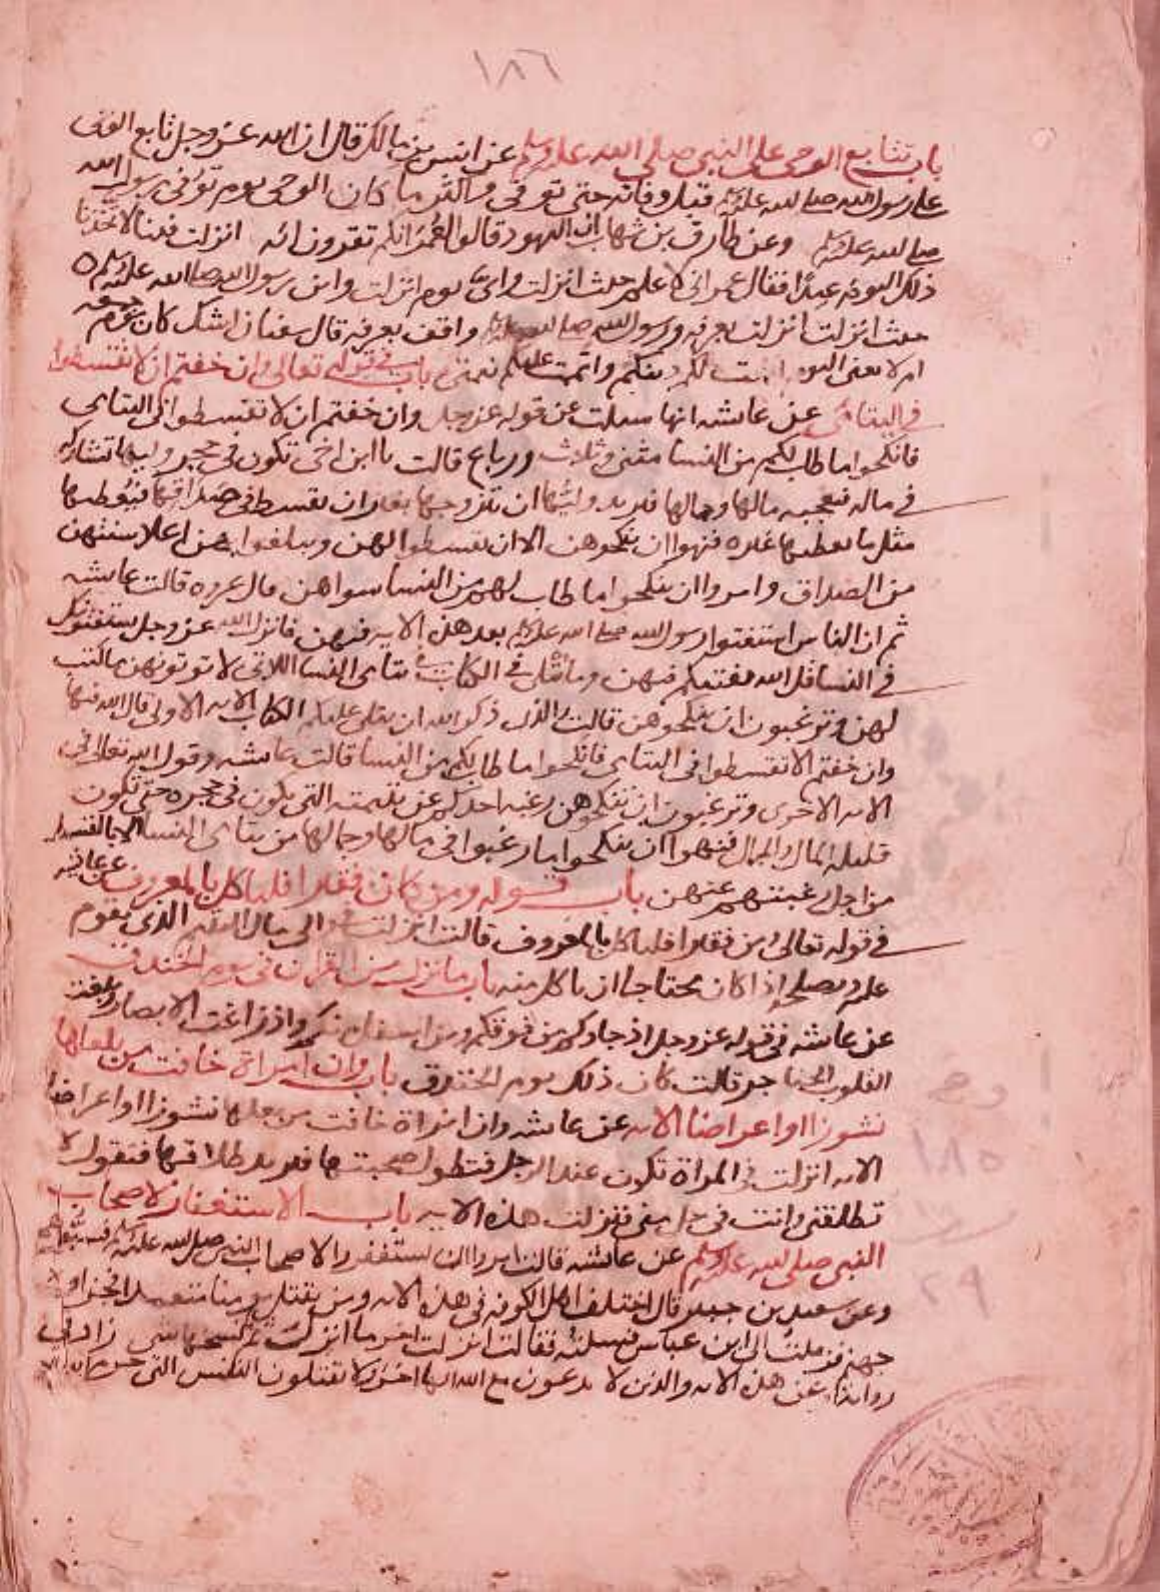 ١٨٦
باب تتابع الوحى على النبى صلى الله عليه وسلم عن انس بن مالك قال ان الله عز وجل تابع الوحى
على رسول الله صلى الله عليه وسلم قبل وفاته حتى توفى واكثر ما كان الوحى يوم توفى رسول الله
صلى الله عليه وسلم وعن طارق بن شهاب ان اليهود قالوا لعمر انكم تقرون ايه انزلت فينا لاتخذنا
ذلك اليوم عيدا فقال عمر انى لاعلم حيث انزلت واى يوم انزلت واين رسول الله صلى الله عليه وسلم
حيث انزلت انزلت بعرفه ورسول الله صلى الله عليه وسلم واقف بعرفه قال سفيان اشك كان يوم جمعه
ام لا يعنى اليوم اكملت لكم دينكم واتممت عليكم نعمتى باب فى قوله تعالى وان خفتم ان لا تقسطوا
فى اليتامى عن عايشه انها سيلت عن قوله عز وجل وان خفتم ان لا تقسطوا فى اليتامى
فانكحوا ما طاب لكم من النسا مثنى وثلاث ورباع قالت يا ابن اختى تكون فى حجر وليها تشاركه
فى ماله فيعجبه مالها وجمالها فيريد وليها ان يتزوجها بغير ان يقسط فى صداقها فيعطيها
مثل ما يعطيها غيره فنهوا ان ينكحوهن الا ان يقسطوا لهن ويبلغوا بهن اعلا سنتهن
من الصداق وامروا ان ينكحوا ما طاب لهم من النسا سواهن قال عروه قالت عايشه
ثم ان الناس استفتوا رسول الله صلى الله عليه وسلم بعد هذه الايه فيهن فانزل الله عز وجل يستفتونك
فى النسا قل الله يفتيكم فيهن وما يتلى فى الكتاب فى يتامى النسا اللاتى لا توتونهن ما كتب
لهن وترغبون ان تنكحوهن قالت والذى ذكر الله ان يتلى عليكم الكتاب الايه الاولى قال الله فيها
وان خفتم الا تقسطوا فى اليتامى فانكحوا ما طاب لكم من النسا قالت عايشه وقول الله تعالى فى
الايه الاخرى وترغبون ان تنكحوهن رغبه احدكم عن يتيمته التى تكون فى حجره حتى تكون
قليله المال والجمال فنهوا ان ينكحوا ما رغبوا فى مالها وجمالها من يتامى النسا الا بالقسط
من اجل رغبتهم عنهن باب قوله ومن كان فقيرا فلياكل بالمعروف عن عايشه
فى قوله تعالى ومن فقيرا فلياكل بالمعروف قالت انزلت فى والى مال اليتيم الذى يقوم
عليه ويصلحه اذا كان محتاجا ان ياكل منه باب ما نزل من القران فى يوم الخندق
عن عايشه فى قوله عز وجل اذ جاوكم من فوقكم ومن اسفل منكم واذ زاغت الابصار وبلغت
القلوب الحناجر قالت كان ذلك يوم الخندق باب وان امراة خافت من بعلها
نشوزا او اعراضا الايه عن عايشه وان امراة خافت من بعلها نشوزا او اعراضا
الايه انزلت فى المراة تكون عند الرجل فتطول صحبتها فيريد طلاقها فتقول لا
تطلقنى وانت فى حل منى فنزلت هذه الايه باب الاستغفار لاصحاب
النبى صلى الله عليه وسلم عن عايشه قالت امروا ان يستغفروا لاصحاب النبى صلى الله عليه وسلم فسبوهم
وعن سعيد بن جبير قال اختلف اهل الكوفه فى هذه الايه ومن يقتل مومنا متعمدا فجزاوه
جهنم فرحلت الى ابن عباس فسيلته فقالت انزلت اخر ما انزلت ثم لم ينسخها شى زاد فى
روايه عن هذه الايه والذين لا يدعون مع الله الها اخر ولا يقتلون النفس التى حرم الله الا
١٨٥
٢٩